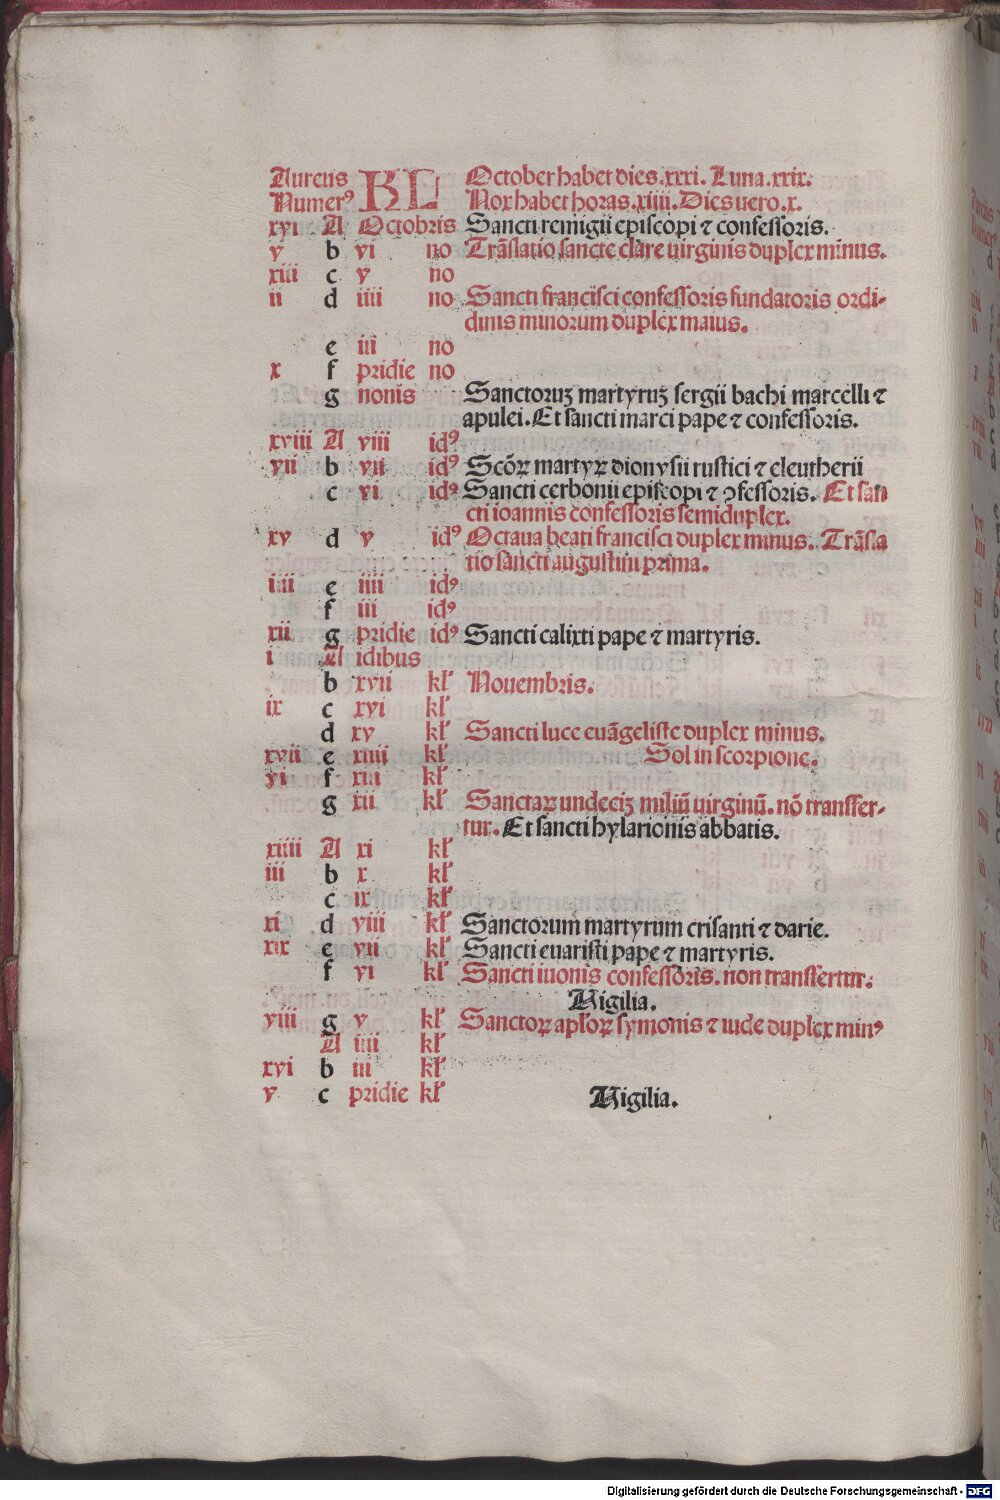 Aureus KL October habet dies .xxxi. Luna .xxix.
Numerꝰ Nox habet horas .xiiii. Dies uero .x.
xvi A Octobris Sancti remigii episcopi ⁊ confessoris.
v b vi no Trãslatio sancte clare uirginis duplex minus.
xiii c v no
ii d iiii no Sancti francisci confessoris fundatoris ordi-
dinis minorum duplex maius.
e iii no
x f pridie no
g nonis Sanctoruꝫ martyruꝫ sergii bachi marcelli ⁊
apulei. Et sancti marci pape ⁊ confessoris.
xviii A viii idꝰ
vii b vii idꝰ Scõꝝ martyꝝ dionysii rustici ⁊ eleutherii
c vi idꝰ Sancti cerbonii episcopi ⁊ ꝯfessoris. Et san
cti ioannis confessoris semiduplex.
xv d v idꝰ Octaua beati francisci duplex minus. Trãsla
tio sancti augustini prima.
iiii e iiii idꝰ
f iii idꝰ
xii g pridie idꝰ Sancti calixti pape ⁊ martyris.
i A idibus
b xvii kl' Nouembris.
ix c xvi kl'
d xv kl' Sancti luce euãgeliste duplex minus.
xvii e xiiii kl' Sol in scorpione.
vi f xiii kl'
g xii kl' Sanctaꝝ undeciꝫ miliũ uirginũ. nõ transfer-
tur. Et sancti hylarionis abbatis.
xiiii A xi kl'
iii b x kl'
c ix kl'
xi d viii kl' Sanctorum martyrum crisanti ⁊ darie.
xix e vii kl' Sancti euaristi pape ⁊ martyris.
f vi kl' Sancti iuonis confessoris. non transfertur.
Vigilia.
viii g v kl' Sanctoꝝ apl'oꝝ symonis ⁊ iude duplex minꝰ
A iiii kl'
xvi b iii kl'
v c pridie kl' Vigilia.
Digitalisierung gefördert durch die Deutsche Forschungsgemeinschaft - DFG